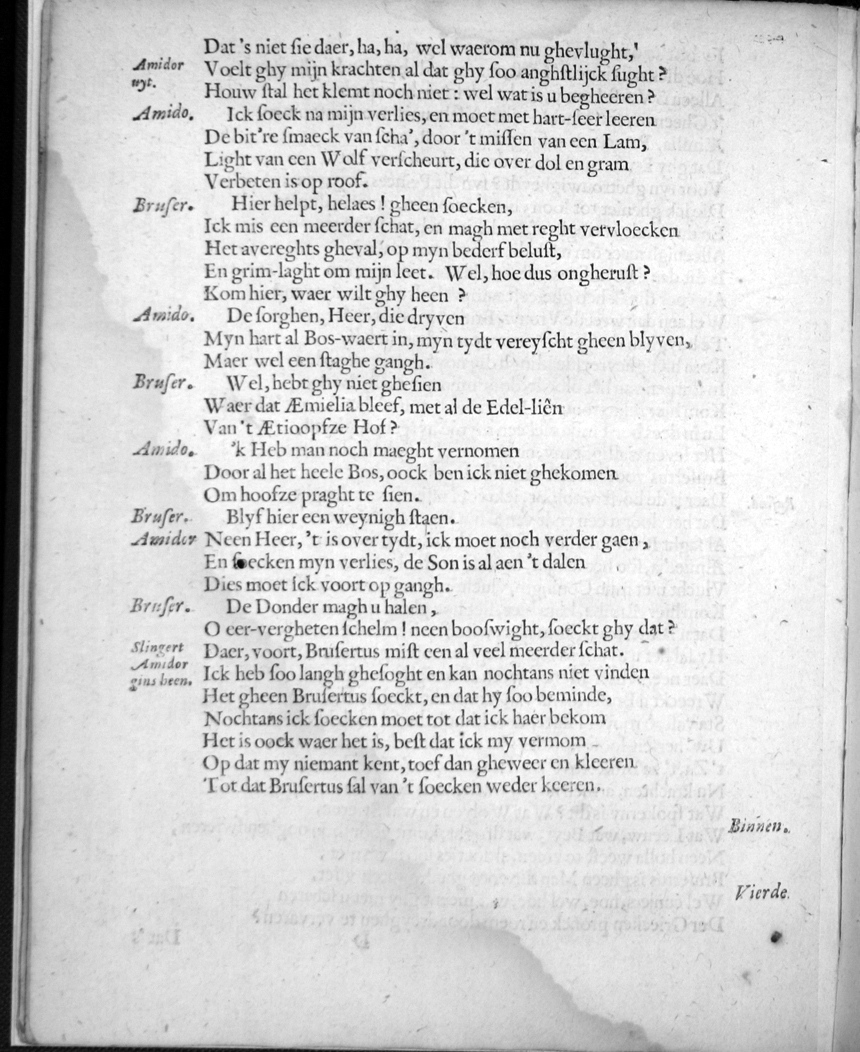 Dat 's niet ſie daer, ha, ha, wel waerom nu ghevlught,'
Amidor uyt. Voelt ghy mijn krachten al dat ghy ſoo anghſtlijck ſught?
Houw ſtal het klemt noch niet: wel wat is u begheeren?
Amido. Ick ſoeck na mijn verlies, en moet met hart-ſeer leeren
De bit're ſmaeck van ſcha', door 't miſſen van een Lam,
Light van een Wolf verſcheurt, die over dol en gram
Verbeten is op roof.
Bruſer. Hier helpt, helaes! gheen ſoecken,
Ick mis een meerder ſchat, en magh met reght vervloecken
Het avereghts gheval, op myn bederf beluſt,
En grim-laght om mijn leet. Wel, hoe dus ongheruſt?
Kom hier, waer wilt ghy heen?
Amido. De ſorghen, Heer, die dryven
Myn hart al Bos-waert in, myn tydt vereyſcht gheen blyven,
Maer wel een ſtaghe gangh.
Bruſer. Wel, hebt ghy niet gheſien
Waer dat Æmielia bleef, met al de Edel-liên
Van 't Ætioopfze Hof?
Amido. 'k Heb man noch maeght vernomen
Door al het heele Bos, oock ben ick niet ghekomen
Om hoofze praght te ſien.
Bruſer. Blyf hier een weynigh ſtaen.
Amidor Neen Heer, 't is over tydt, ick moet noch verder gaen,
En ſoecken myn verlies, de Son is al aen 't dalen
Dies moet ick voort op gangh.
Bruſer. De Donder magh u halen,
O eer-vergheten ſchelm! neen booſwight, ſoeckt ghy dat?
Slingert Amidor gins heen. Daer, voort, Bruſertus miſt een al veel meerder ſchat.
Ick heb ſoo langh gheſoght en kan nochtans niet vinden
Het gheen Bruſertus ſoeckt, en dat hy ſoo beminde,
Nochtans ick ſoecken moet tot dat ick haer bekom
Het is oock waer het is, beſt dat ick my vermom
Op dat my niemant kent, toef dan gheweer en kleeren
Tot dat Bruſertus ſal van 't ſoecken weder keeren.
Binnen.
Vierde.